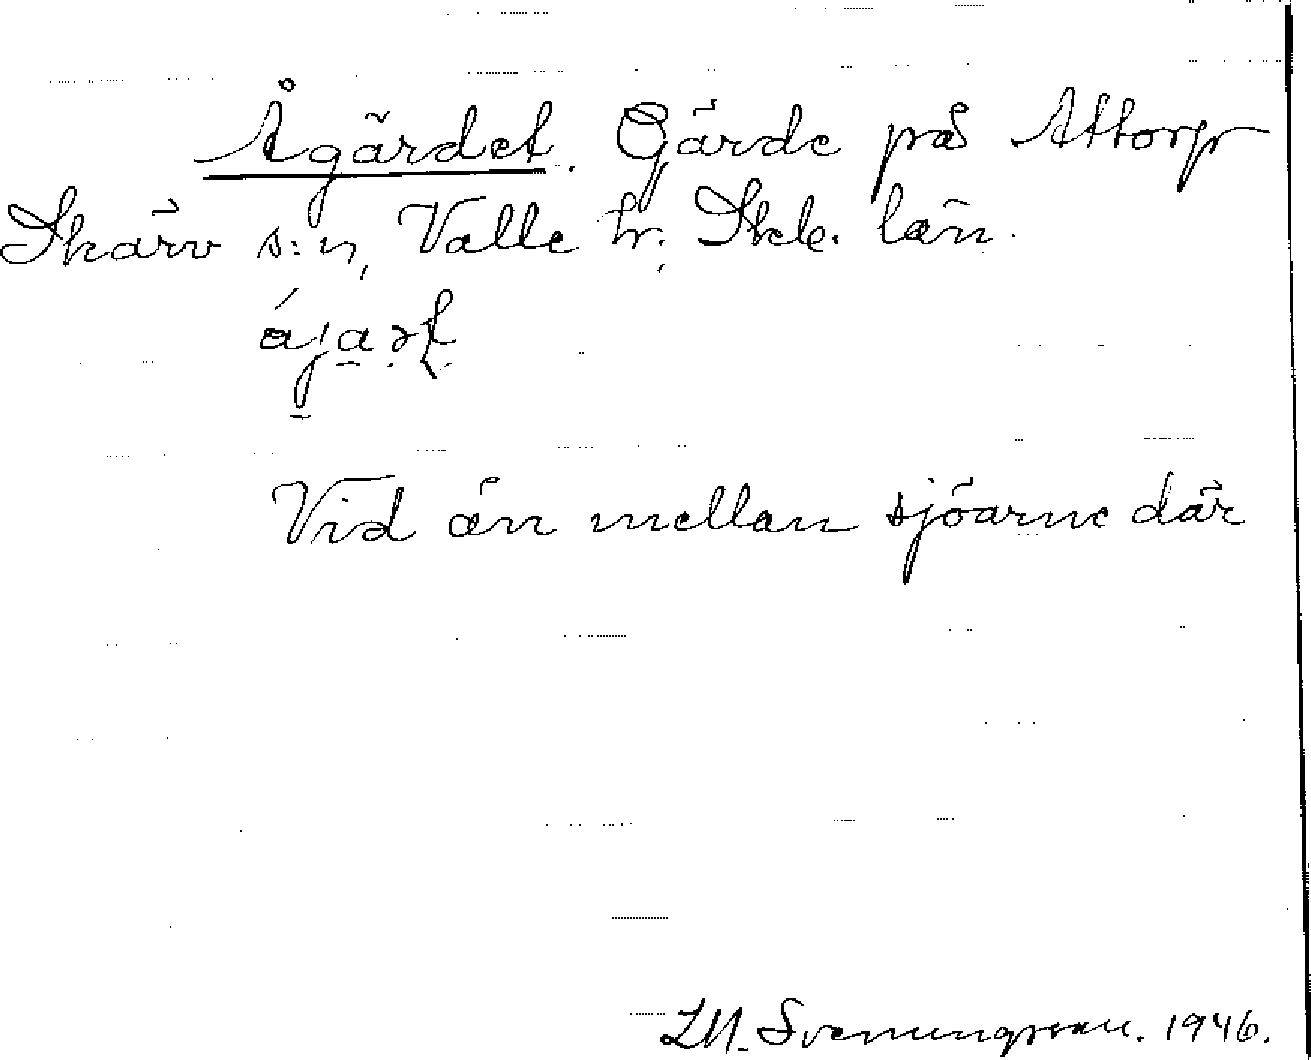 Ågärdet. Gärde på Attorp
Skärv s:n, Valle hr, Skb. län.
Vid ån mellan sjöarne där
Svenungsson. 1946.